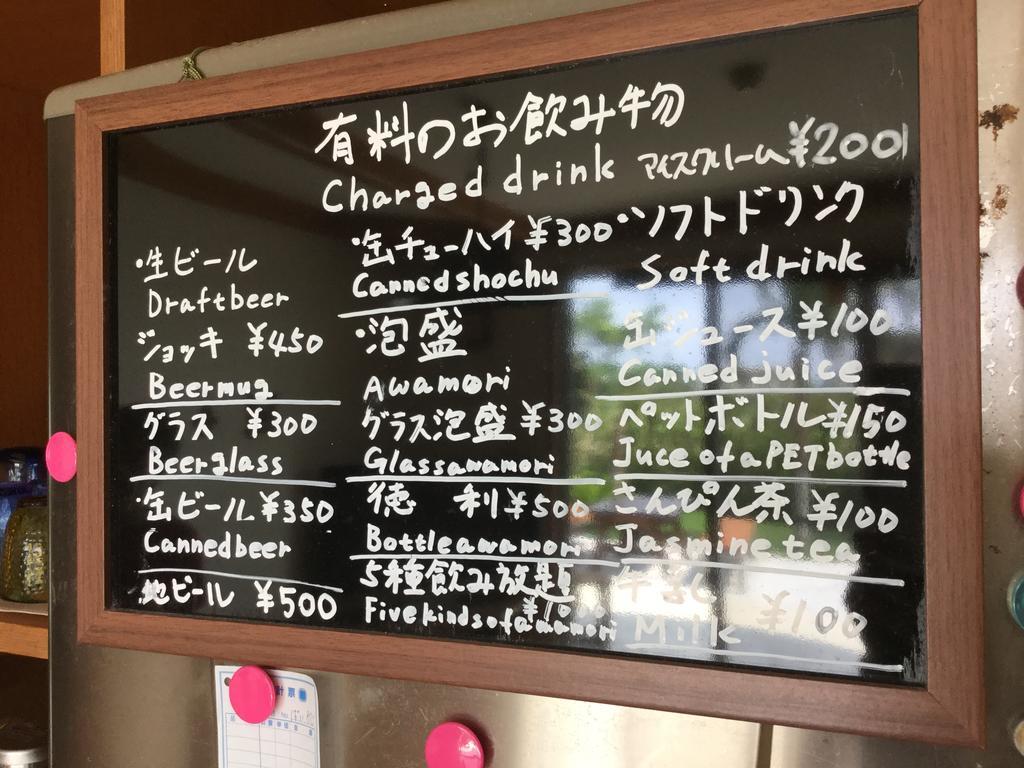 有料のお飲み物
Charged drink アイスクリーム ¥200
・生ビール
Draft beer
ジョッキ ¥450
Beer mug
グラス ¥300
Beer glass
・缶ビール ¥350
Canned beer
地ビール ¥500
・缶チューハイ ¥300
Canned shochu
・泡盛
Awamori
グラス泡盛 ¥300
Glass awamori
徳利 ¥500
Bottle awamori
5種飲み放題
Five kinds of awamori
・ソフトドリンク
Soft drink
缶ジュース ¥100
Canned juice
ペットボトル ¥150
Juce of a PET bottle
さんぴん茶 ¥100
Jasmine tea
牛乳 ¥100
Milk